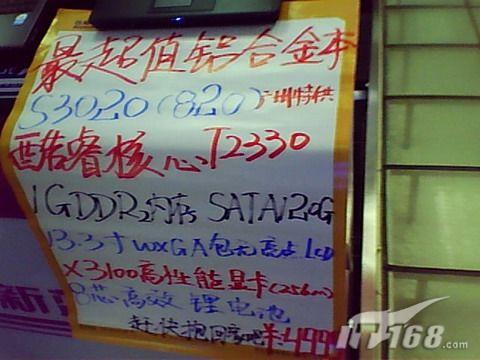 最超值铝合金本
S3020(820)广州特供
酷睿核心T2330
1GDDR2内存 SATA120G
13.3寸WXGA包无亮点LCD
X3100高性能显卡(256m)
8芯高效锂电池
赶快抱回家吧¥499
IT168.com
新